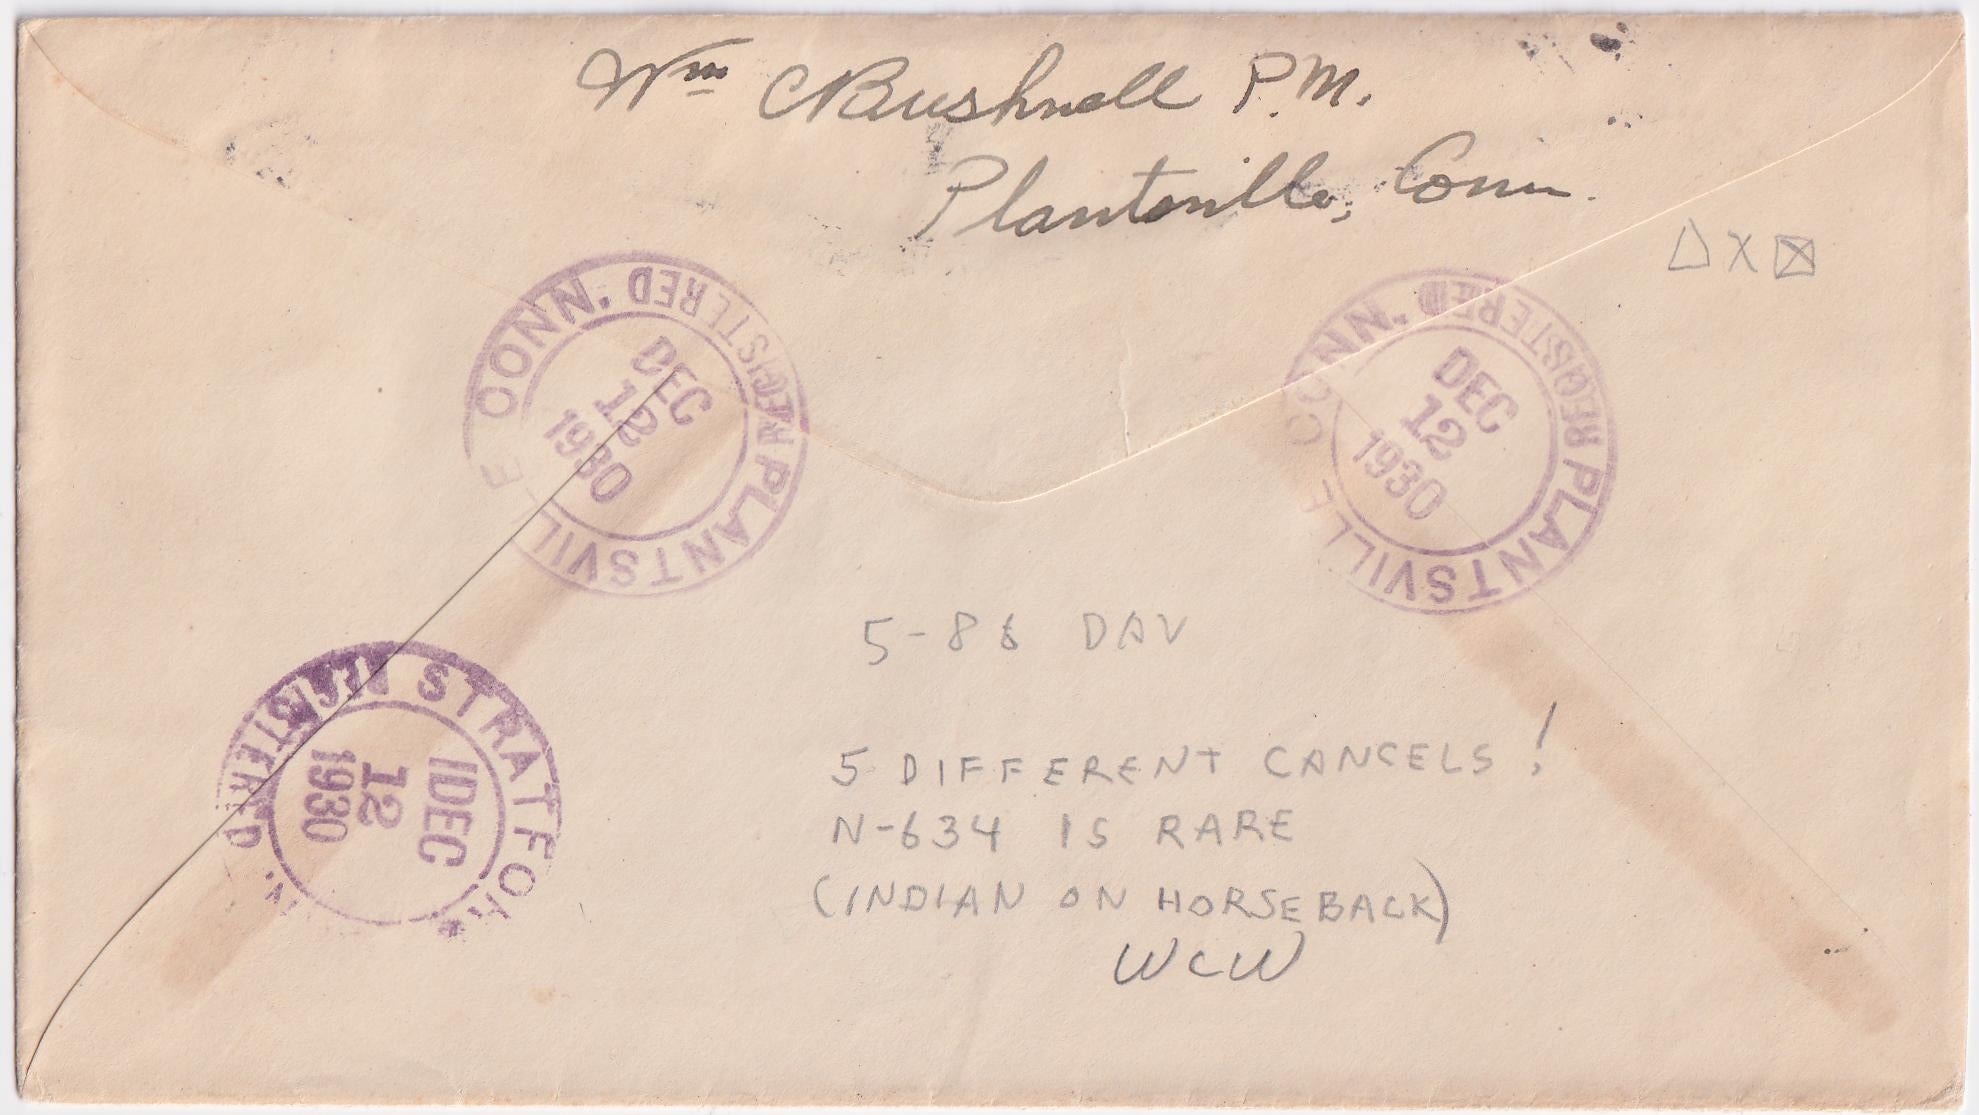 Wm C Bushnell P.M.
Plantsville, Conn.
△ X ☒
PLANTSVILLE CONN. REGISTERED
DEC
12
1930
PLANTSVILLE CONN. REGISTERED
DEC
12
1930
STRATFOR REGISTERED
DEC
12
1930
5-86 DAV
5 DIFFERENT CANCELS!
N-634 IS RARE
(INDIAN ON HORSEBACK)
WCW